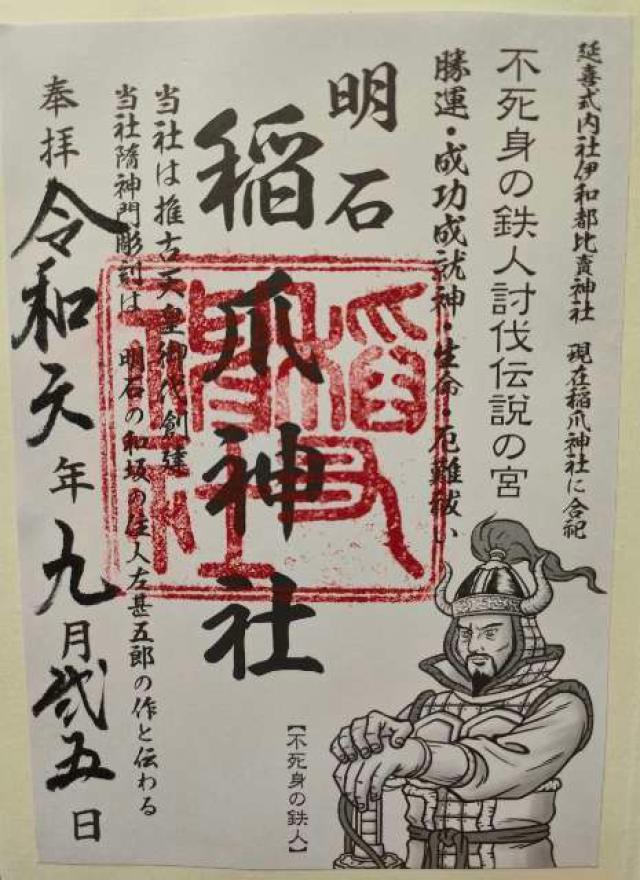 延喜式内社伊和都比賣神社 現在稲爪神社に合祀
不死身の鉄人討伐伝説の宮
勝運・成功成就神・生命・厄難祓い
明石
稲爪神社
当社は推古天皇御代創建
当社隋神門彫刻は 明石の和坂の住人左甚五郎の作と伝わる
奉拝
令和元年九月弐五日
【不死身の鉄人】